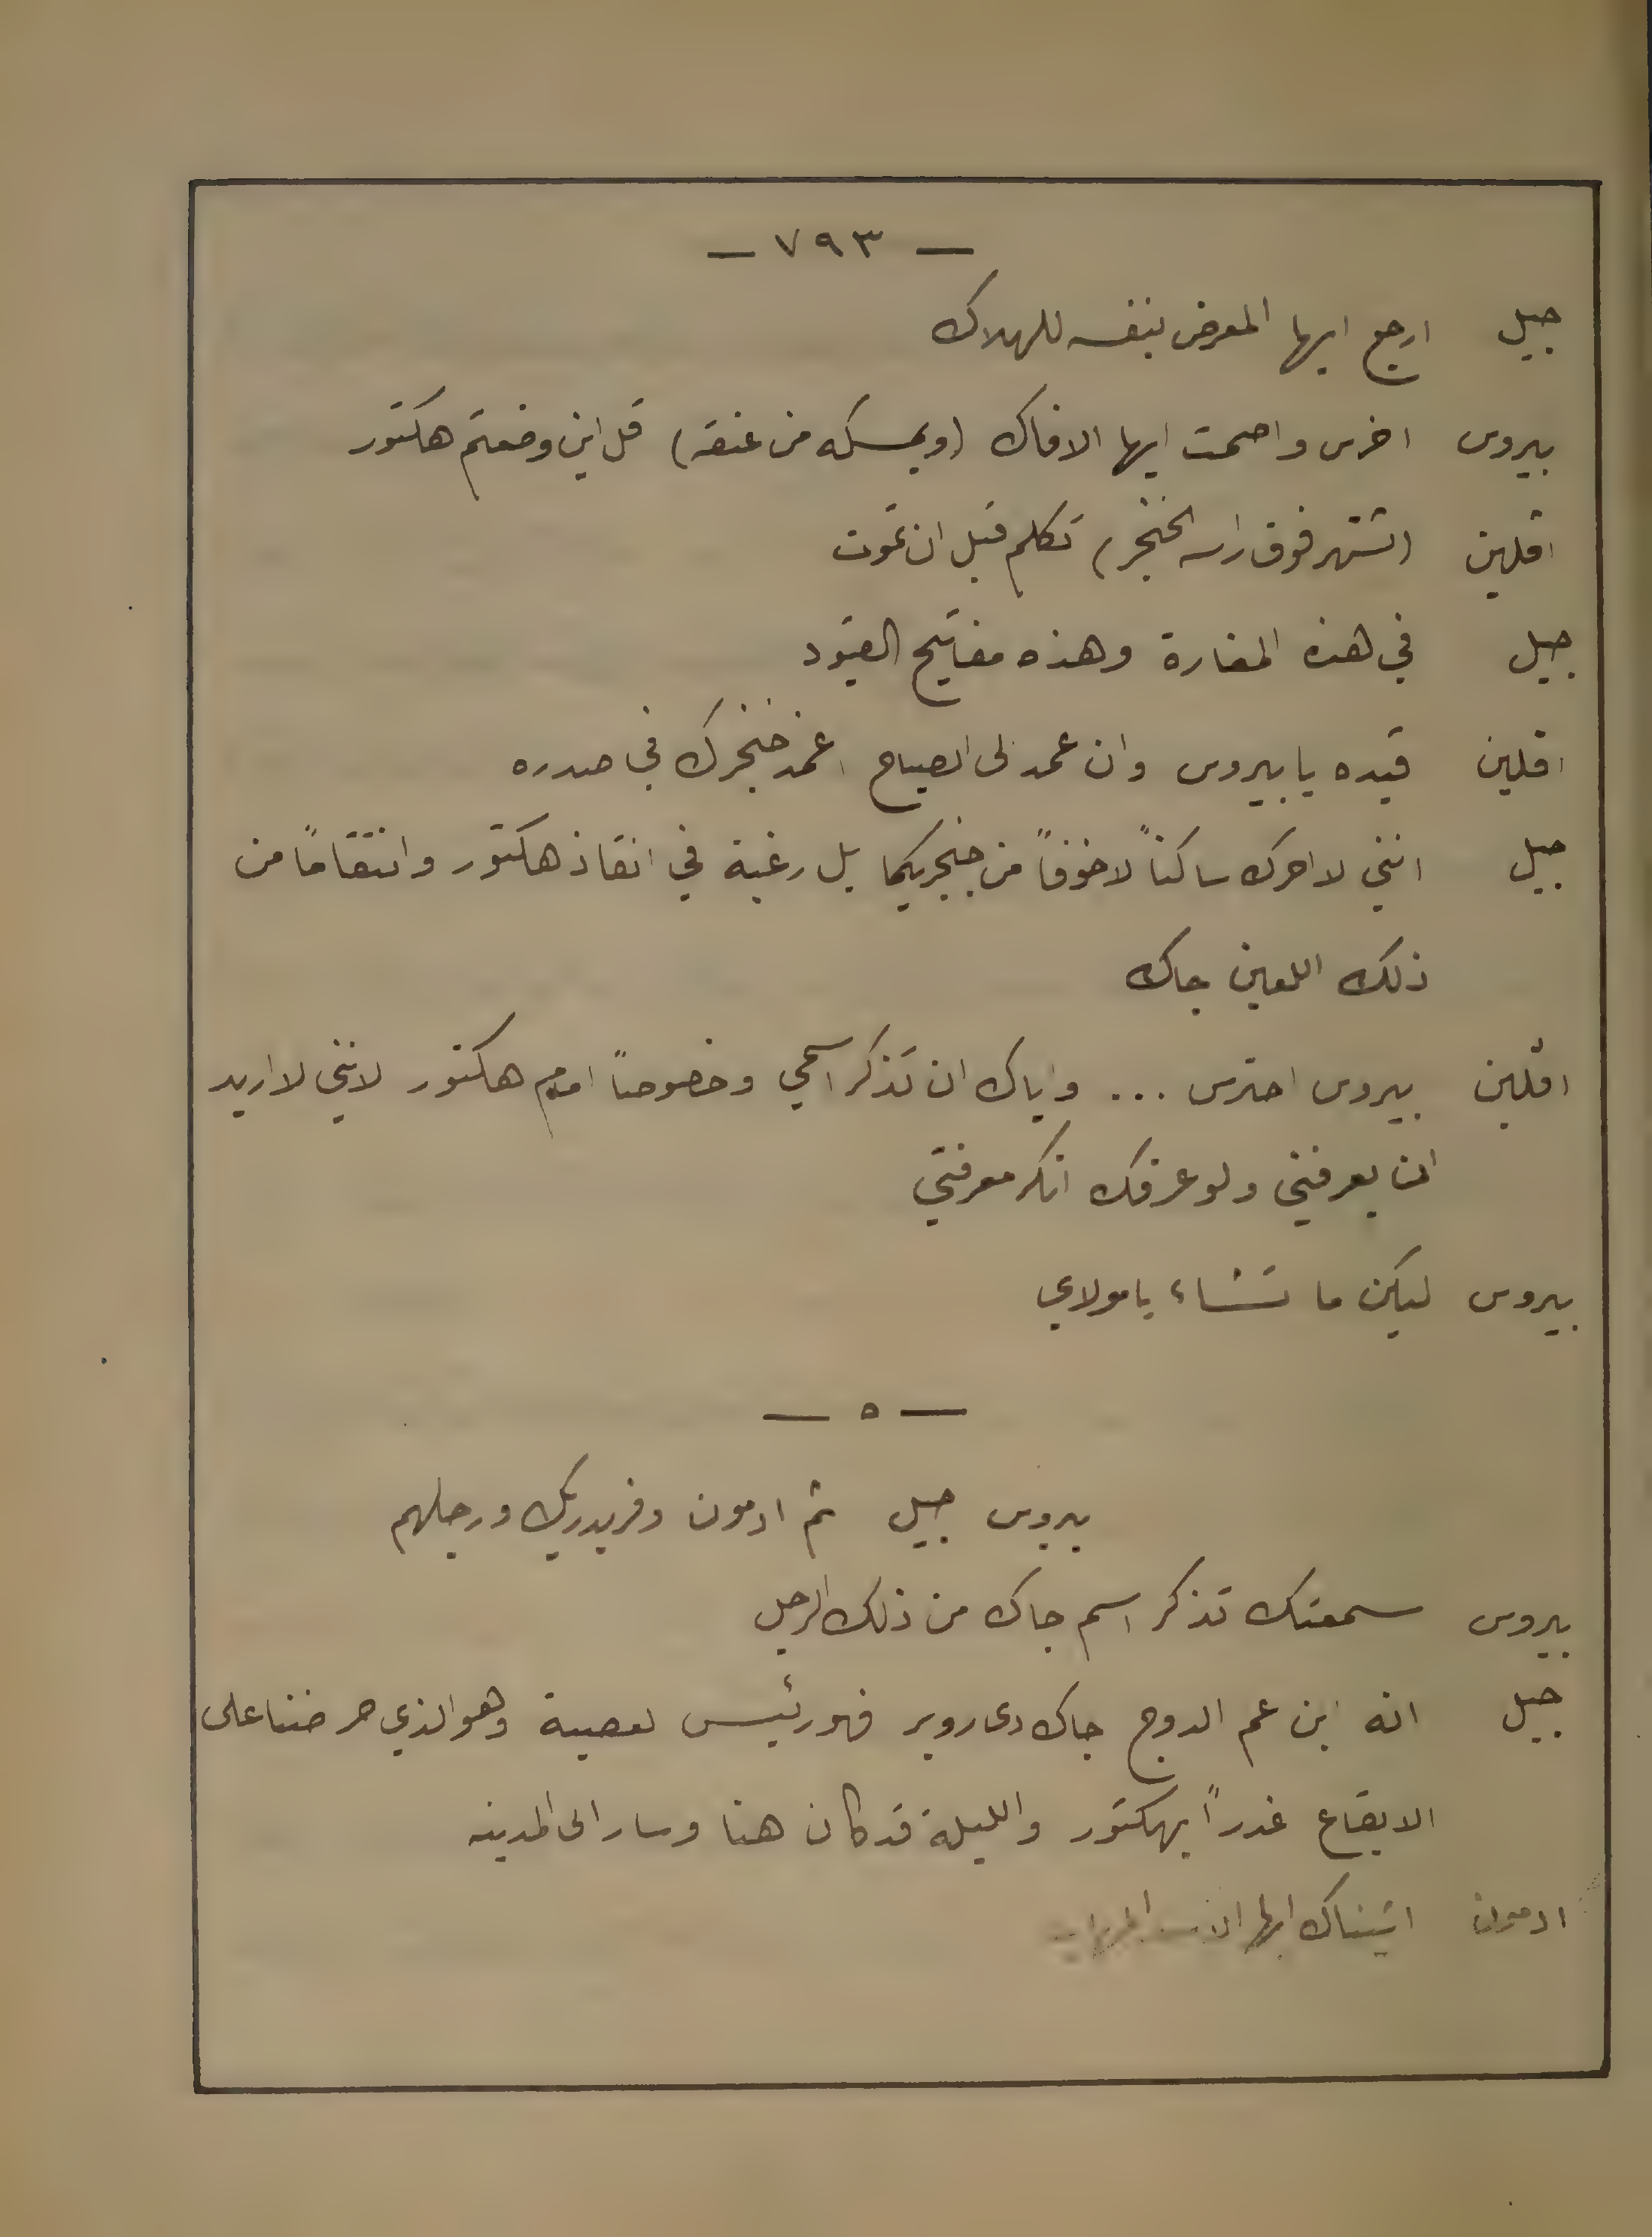 — ٧٩٣ —
جيل ارجع ايها المعرض بنفسه للهلاك
بيروس اخرس واصمت ايها الافاك (ويمسكه من عنقه) قل اين وضعتم هكتور
افلين (تشهر فوق راسه الخنجر) تكلم قبل ان تموت
جيل في هذه المغارة وهذه مفاتيح القيود
افلين قيده يا بيروس وان عمد الى الصياح اغمد خنجرك في صدره
جيل انني لا احرك ساكناً لا خوفاً من خنجريكما بل رغبة في انقاذ هكتور وانتقاماً من
ذلك اللعين جاك
افلين بيروس احترس ... واياك ان تذكر اسمي وخصوصاً امام هكتور لانني لا اريد
ان يعرفني ولو عرفك انكر معرفتي
بيروس ليكن ما تشاء يا مولاي
— ٥ —
بيروس جيل ثم ادمون وفريدريك ورجلهم
بيروس سمعتك تذكر اسم جاك من ذلك الرجل
جيل انه ابن عم الدوج جاك دى روبر فهو رئيس لعصبة وهو الذي حرضنا على
الايقاع غدراً بهكتور والليلة قد كان هنا وسار الى المدينه
ادمون اتيناك ايها